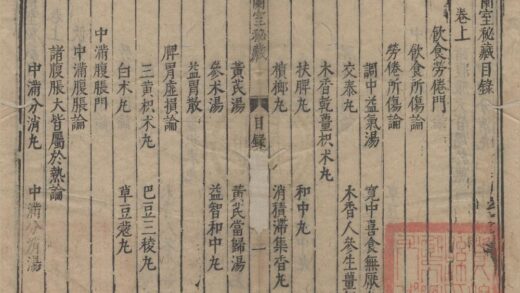 蘭室秘藏目錄
卷上
飲食勞倦門
飲食所傷論
勞倦所傷論
調中益氣湯 寬中喜食無厭
交泰丸 木香人參生薑枳
木香乾薑枳术丸
扶脾丸 和中丸
檳榔丸 消積滯集香丸
蘭室秘藏 目錄 一
黃芪湯 黃芪當歸湯
參术湯 益智和中丸
益胃散
脾胃虛損論
三黃枳术丸 巴豆三稜丸
白术丸 草豆蔻丸
中滿腹脹門
中滿腹脹論
諸腹脹大皆屬於熱論
中滿分消丸 中滿分消湯